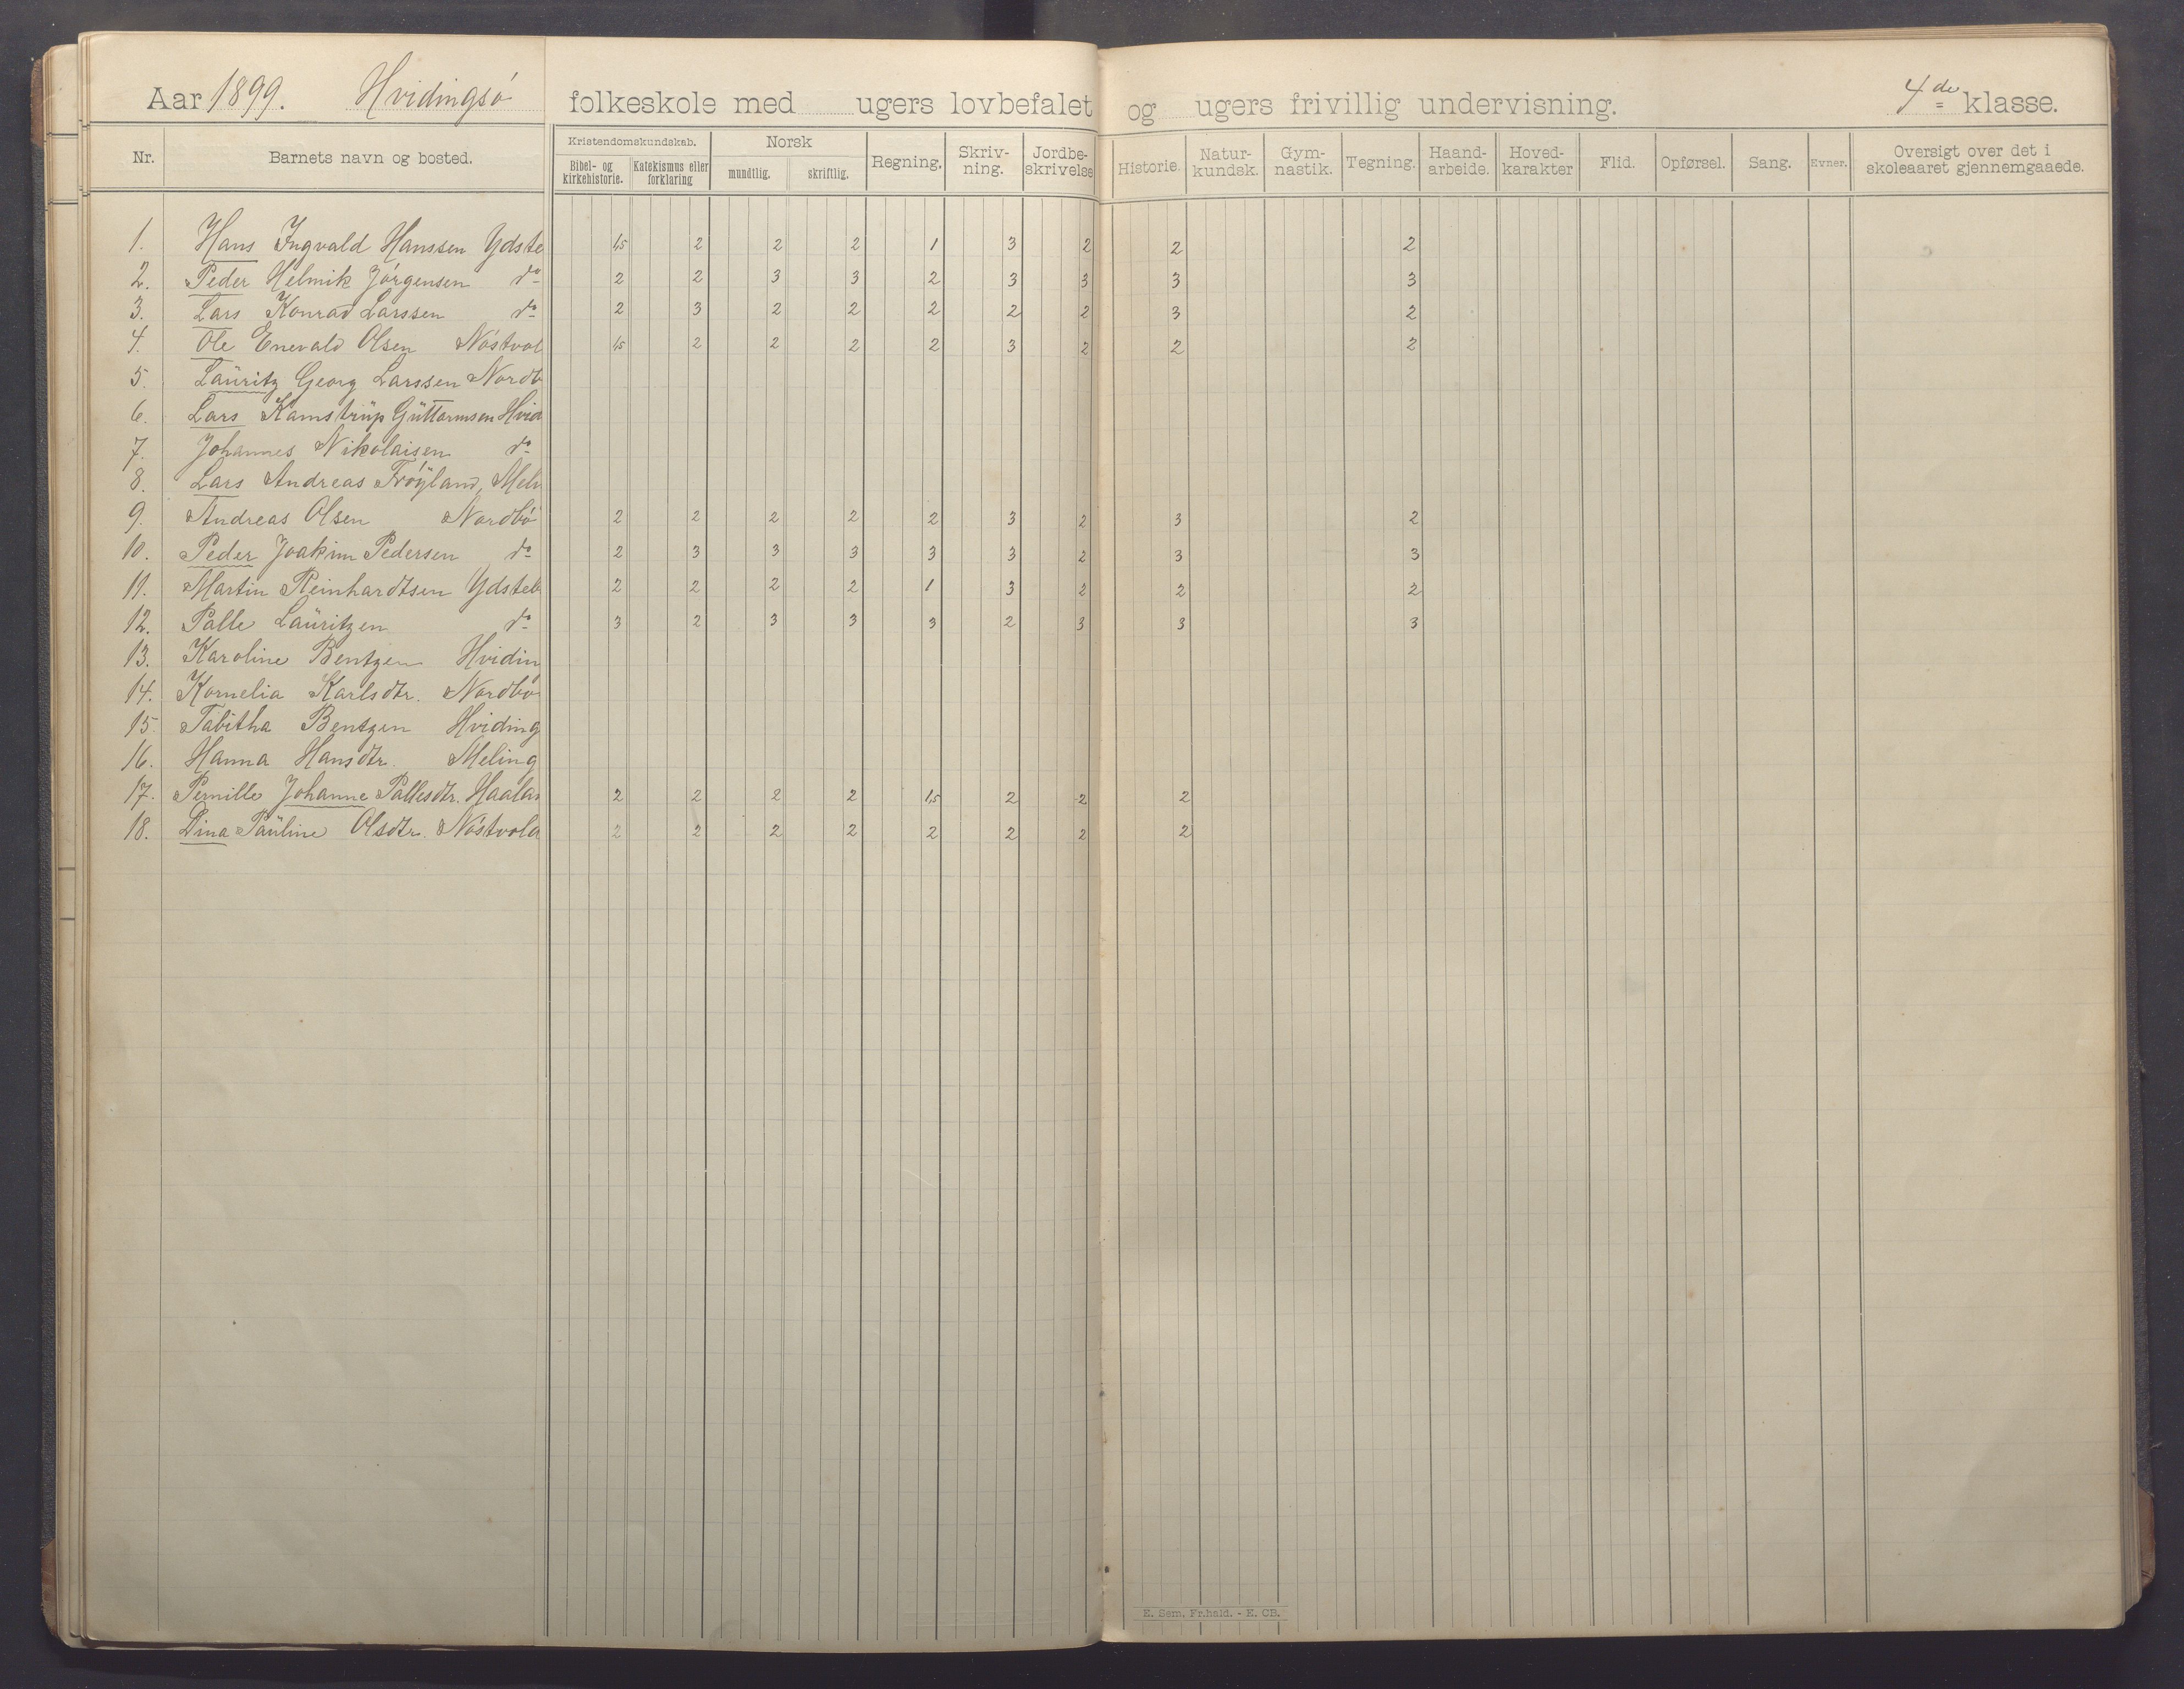 Aar 1899. Hvidingsö folkeskole med ugers lovbefalet og ugers frivillig undervisning. 4de klasse.
Nr. Barnets navn og bosted. Kristendomskundskab. Bibel- og kirkehistorie. Katekismus eller forklaring Norsk mundtlig. skriftlig. Regning. Skriv-ning. Jordbe-skrivelse Historie. Natur-kundsk. Gym-nastik. Tegning. Haand-arbeide. Hoved-karakter Flid. Opførsel. Sang. Evner. Oversigt over det i skoleaaret gjennemgaaede.
1. Hans Ingvald Hanssen Ydste 1,5 2 2 2 1 3 2 2 2
2. Peder Helmik Jörgensen do 2 2 3 3 2 3 3 3 3
3. Lars Konrad Larssen do 2 3 2 2 2 2 2 3 2
4. Ole Enevald Olsen Nöstvol 1,5 2 2 2 2 3 2 2 2
5. Lauritz Georg Larssen Nordb
6. Lars Kamstrup Guttormsen Hvid
7. Johannes Nikolaisen do
8. Lars Andreas Fröyland, Mel
9. Andreas Olsen Nordbö 2 2 2 2 2 3 2 3 2
10. Peder Joakim Pedersen do 2 3 3 3 3 3 2 3 3
11. Martin Reinhardtsen Ydsteb 2 2 2 2 1 3 2 2 2
12. Palle Lauritzen do 3 2 3 3 3 2 3 3 3
13. Karoline Bentzen Hviding
14. Kornelia Karlsdtr. Nordbö
15. Tabitha Bentzen Hviding
16. Hanna Hansdtr. Meling
17. Pernille Johanne Pallesdtr. Haalan 2 2 2 2 1,5 2 2 2
18. Dina Pauline Olsdtr. Nöstvold 2 2 2 2 2 2 2 2
E. Sem, Fr.hald. - E. CB.